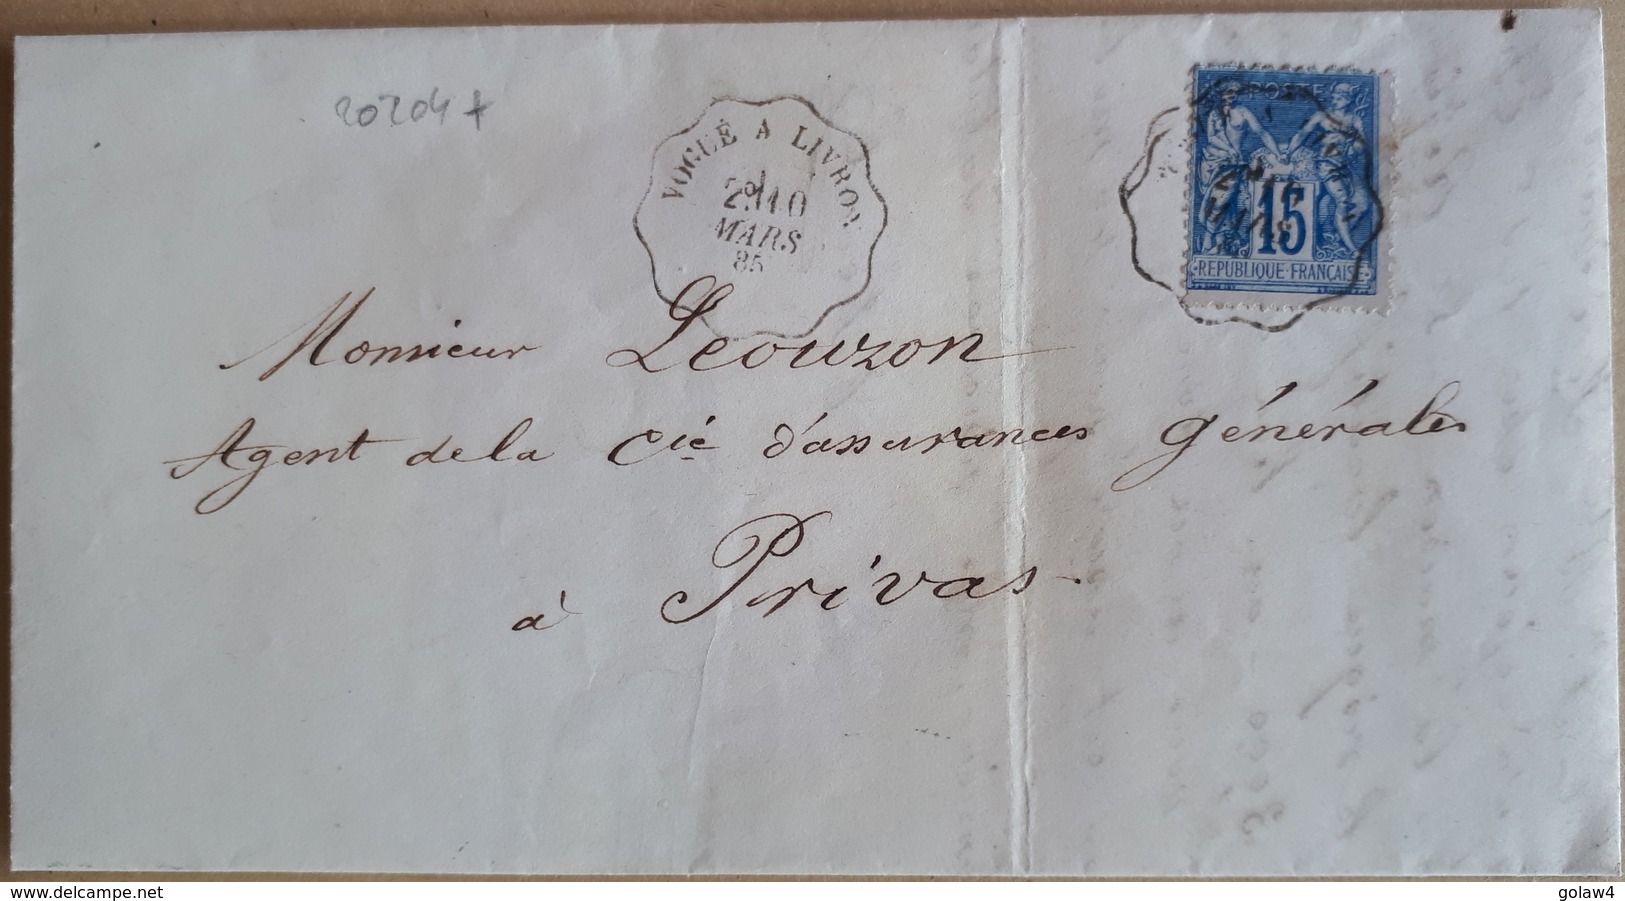 20204+
VOGUÉ A LIVRON
2° 10
MARS
85
POSTE
15
REPUBLIQUE FRANÇAISE
Monsieur Léouzon
Agent de la Cie d'assurances Générales
à Privas
www.delcampe.net
golaw4